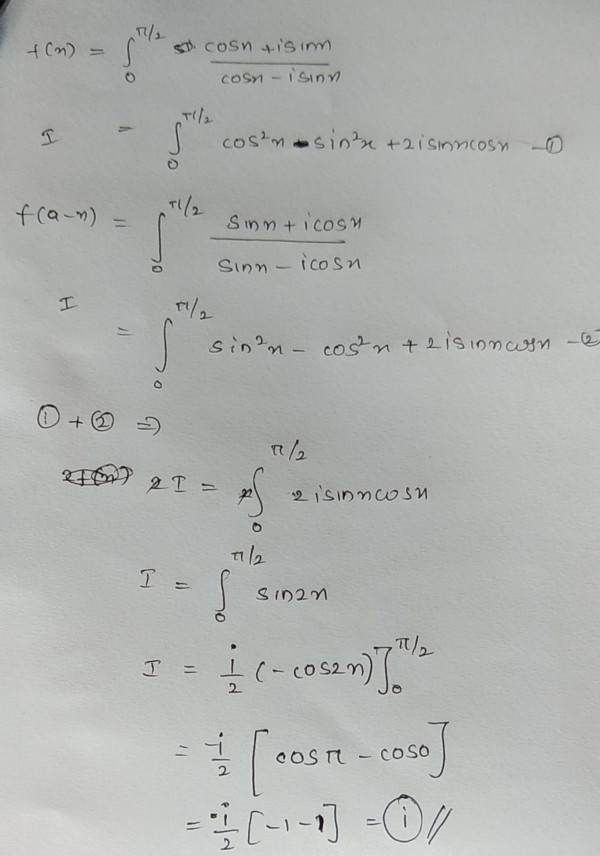 f(n) = ∫₀^π/2 cosn + isinn / cosn - isinn
I = ∫₀^π/2 cos²n - sin²x + 2isinncosn - ①
f(a-n) = ∫₀^π/2 sinn + icosn / sinn - icosn
I = ∫₀^π/2 sin²n - cos²n + 2isinncosn - ②
① + ② ⇒
2I = 2∫₀^π/2 2isinncosn
I = ∫₀^π/2 sin2n
I = i/2 (-cos2n)]₀^π/2
= -i/2 [cosπ - cos0]
= -i/2 [-1-1] = i //